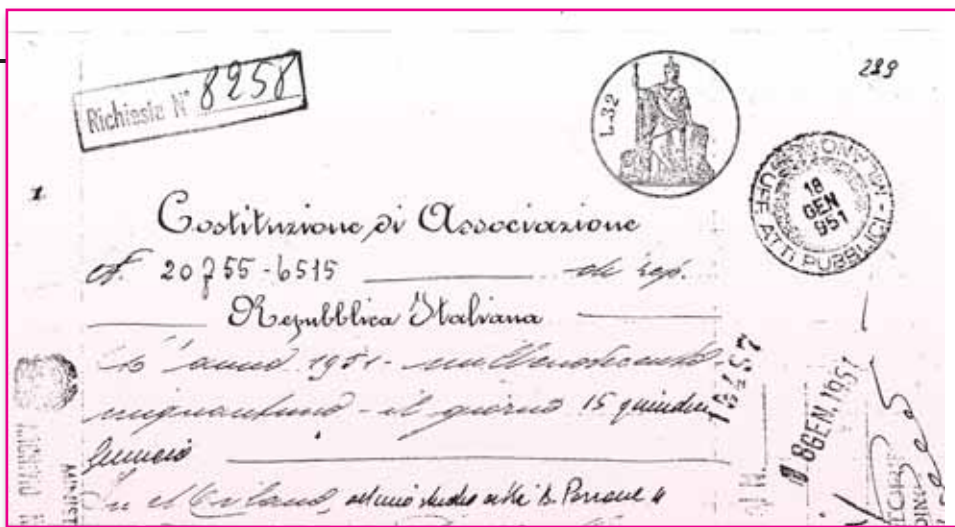 289
Richiesta N° 8258
L.32
MILANO - UFF. ATTI PUBBLICI
18
GEN
951
1
Costituzione di Associazione
N. 20755-6515 di rep.
Repubblica Italiana
L'anno 1951 - millenovecento
cinquantuno - il giorno 15 quindici
Gennaio
In Milano, nel mio studio
18 GEN. 1951